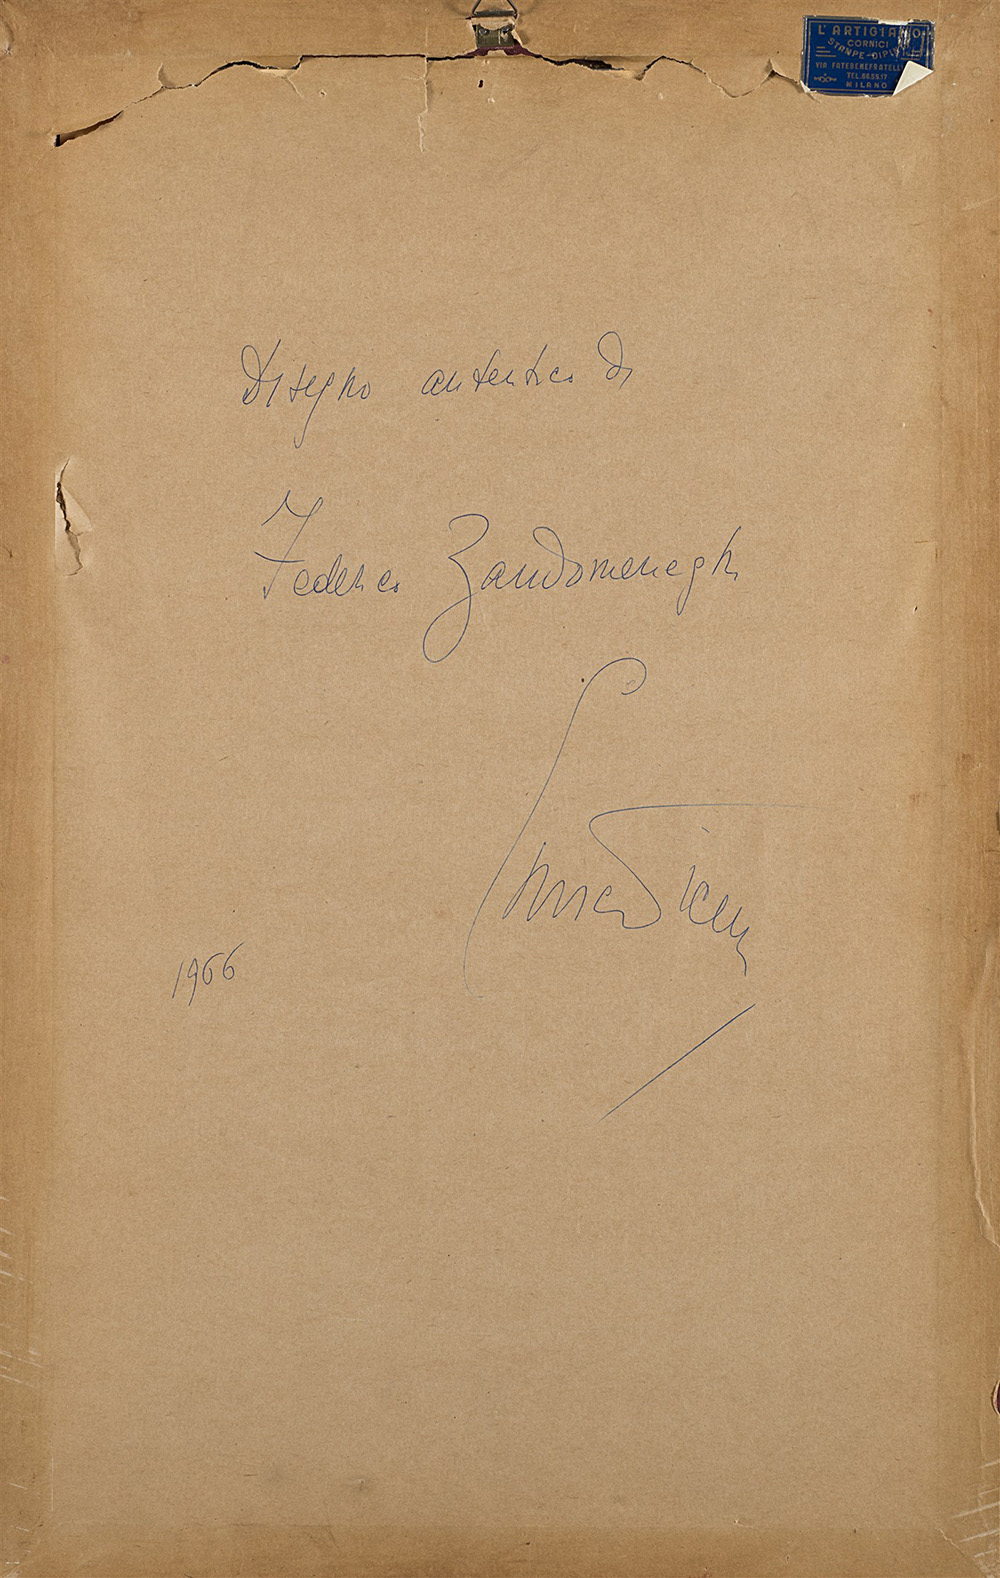 L'ARTIGIANO
CORNICI
STAMPE-DIPI
VIA FATEBENEFRATELL
TEL.
MILANO
Disegno autentico di
Federico Zandomeneghi
1966